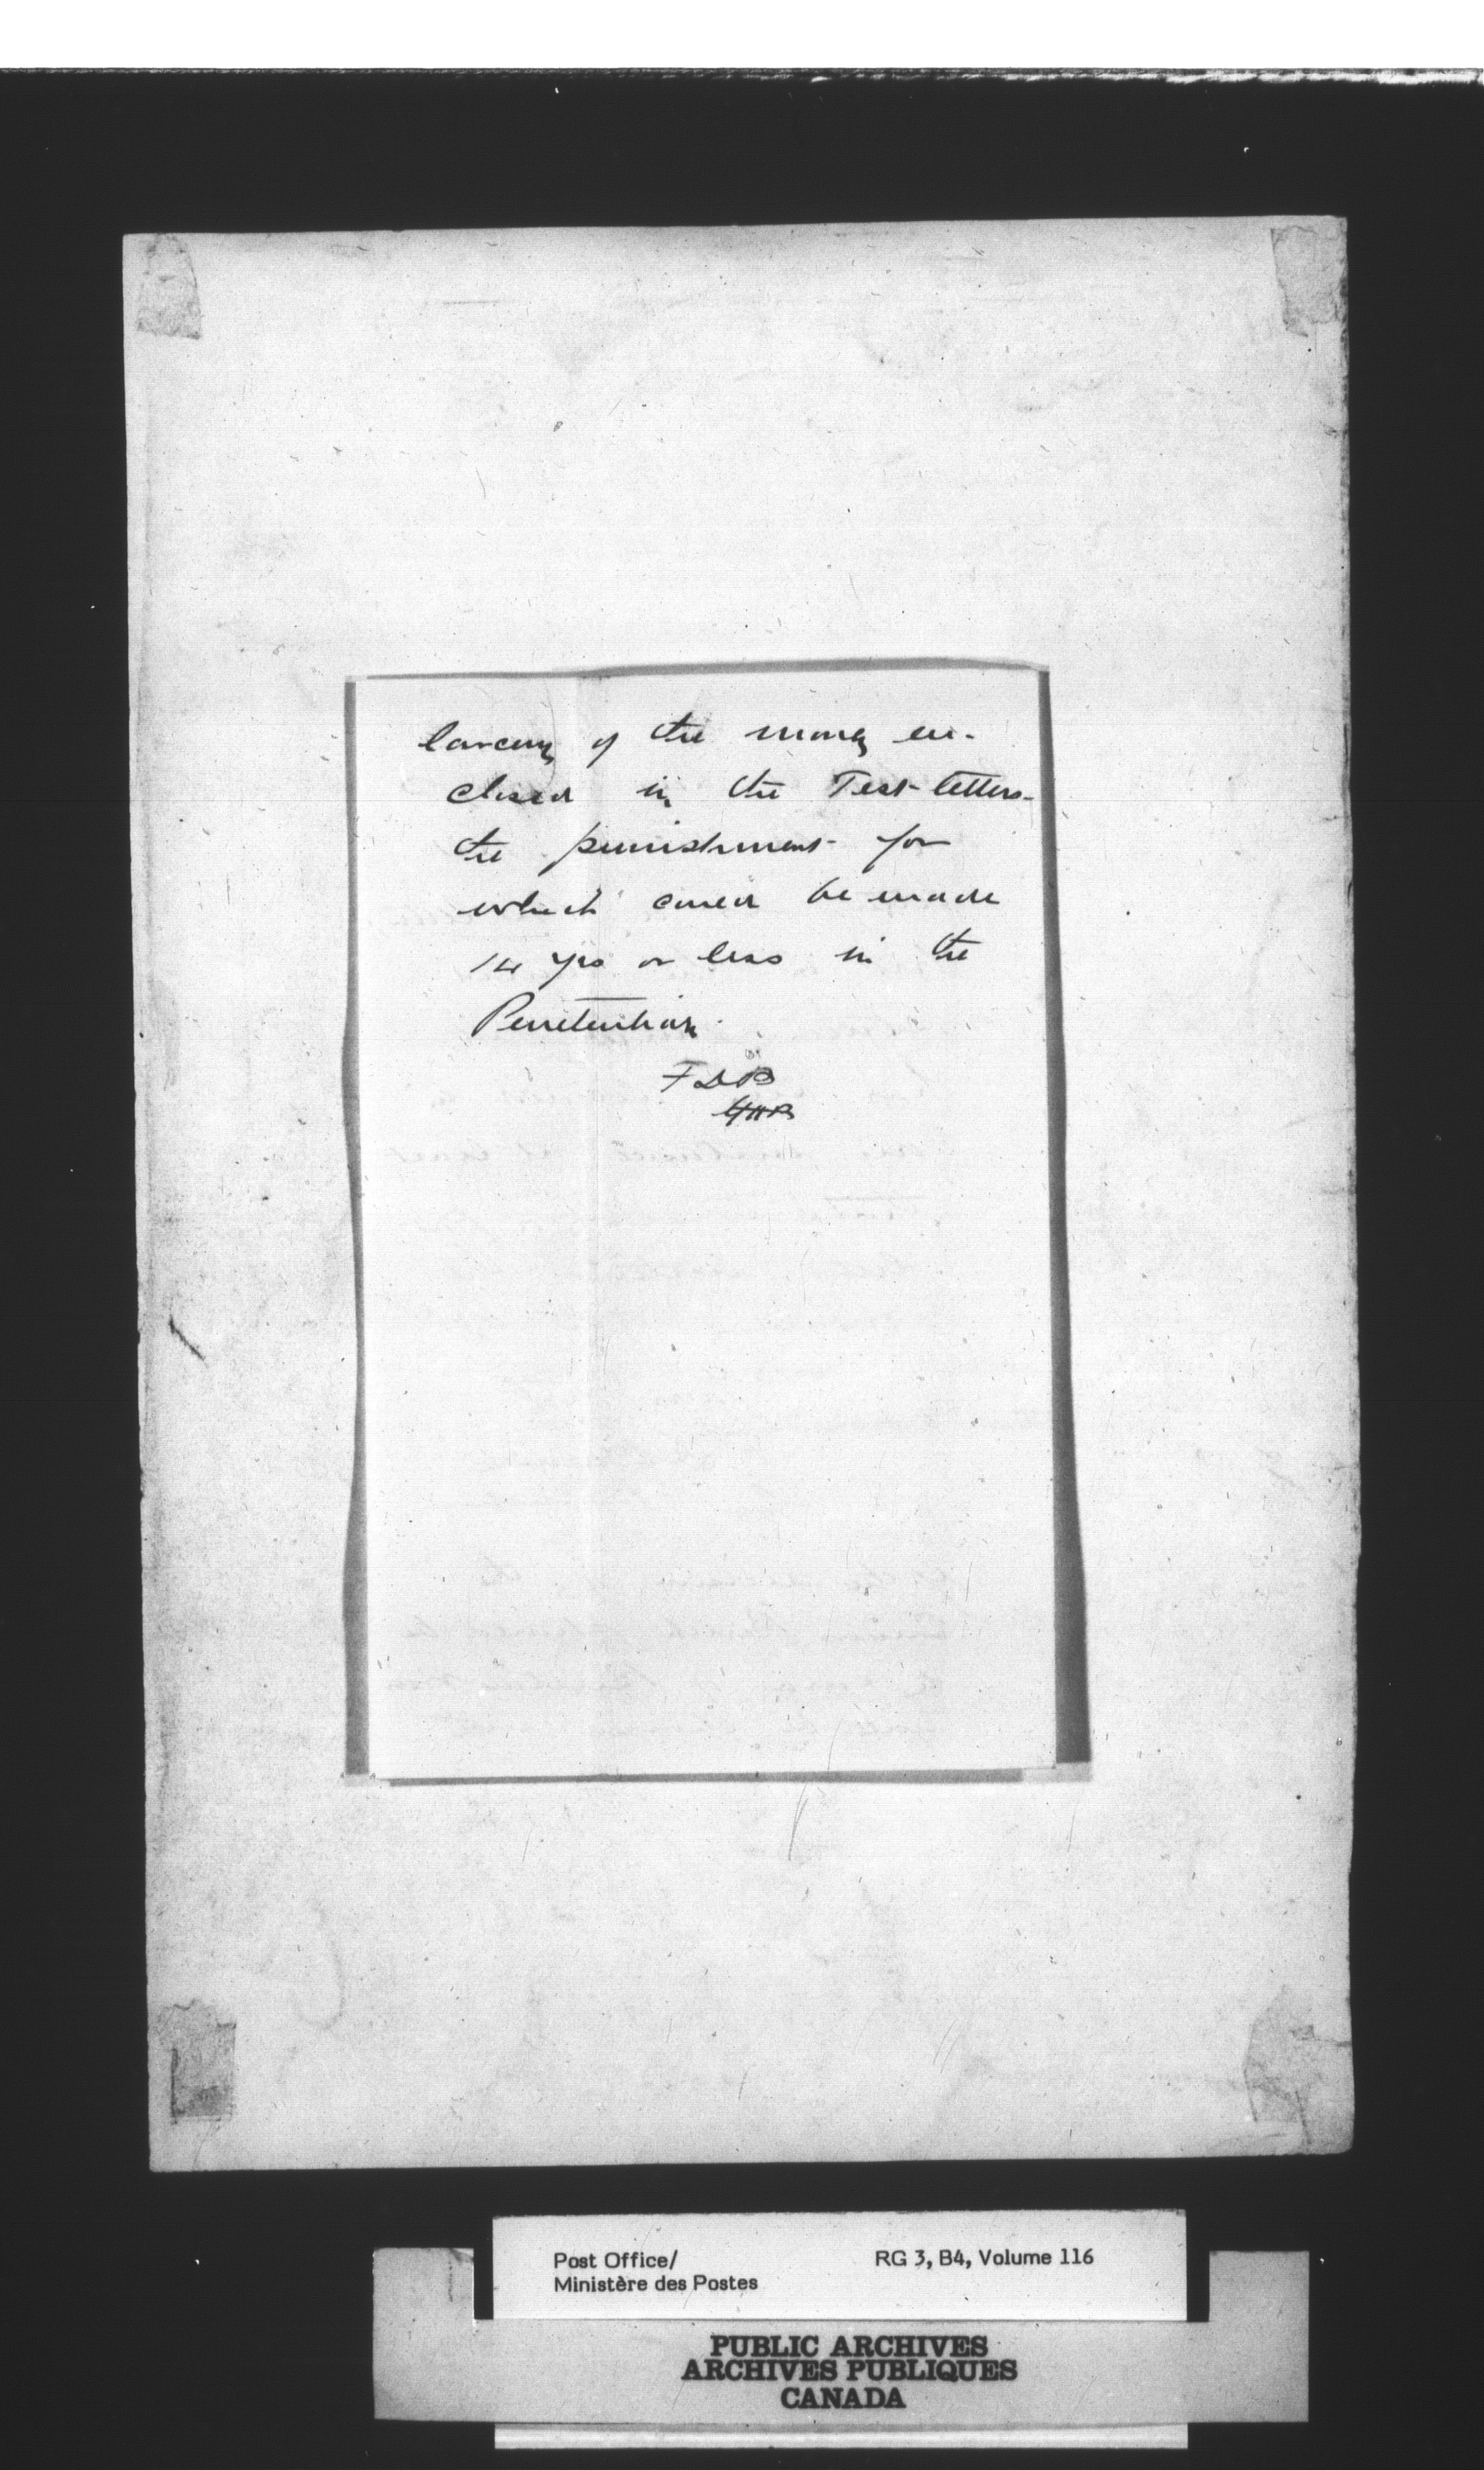 larceny of the money en-
closed in the Test-letters-
the punishment for
which could be made
14 yrs or less in the
Penetentiary.
FDB
Post Office/
Ministère des Postes
RG 3, B4, Volume 116
PUBLIC ARCHIVES
ARCHIVES PUBLIQUES
CANADA